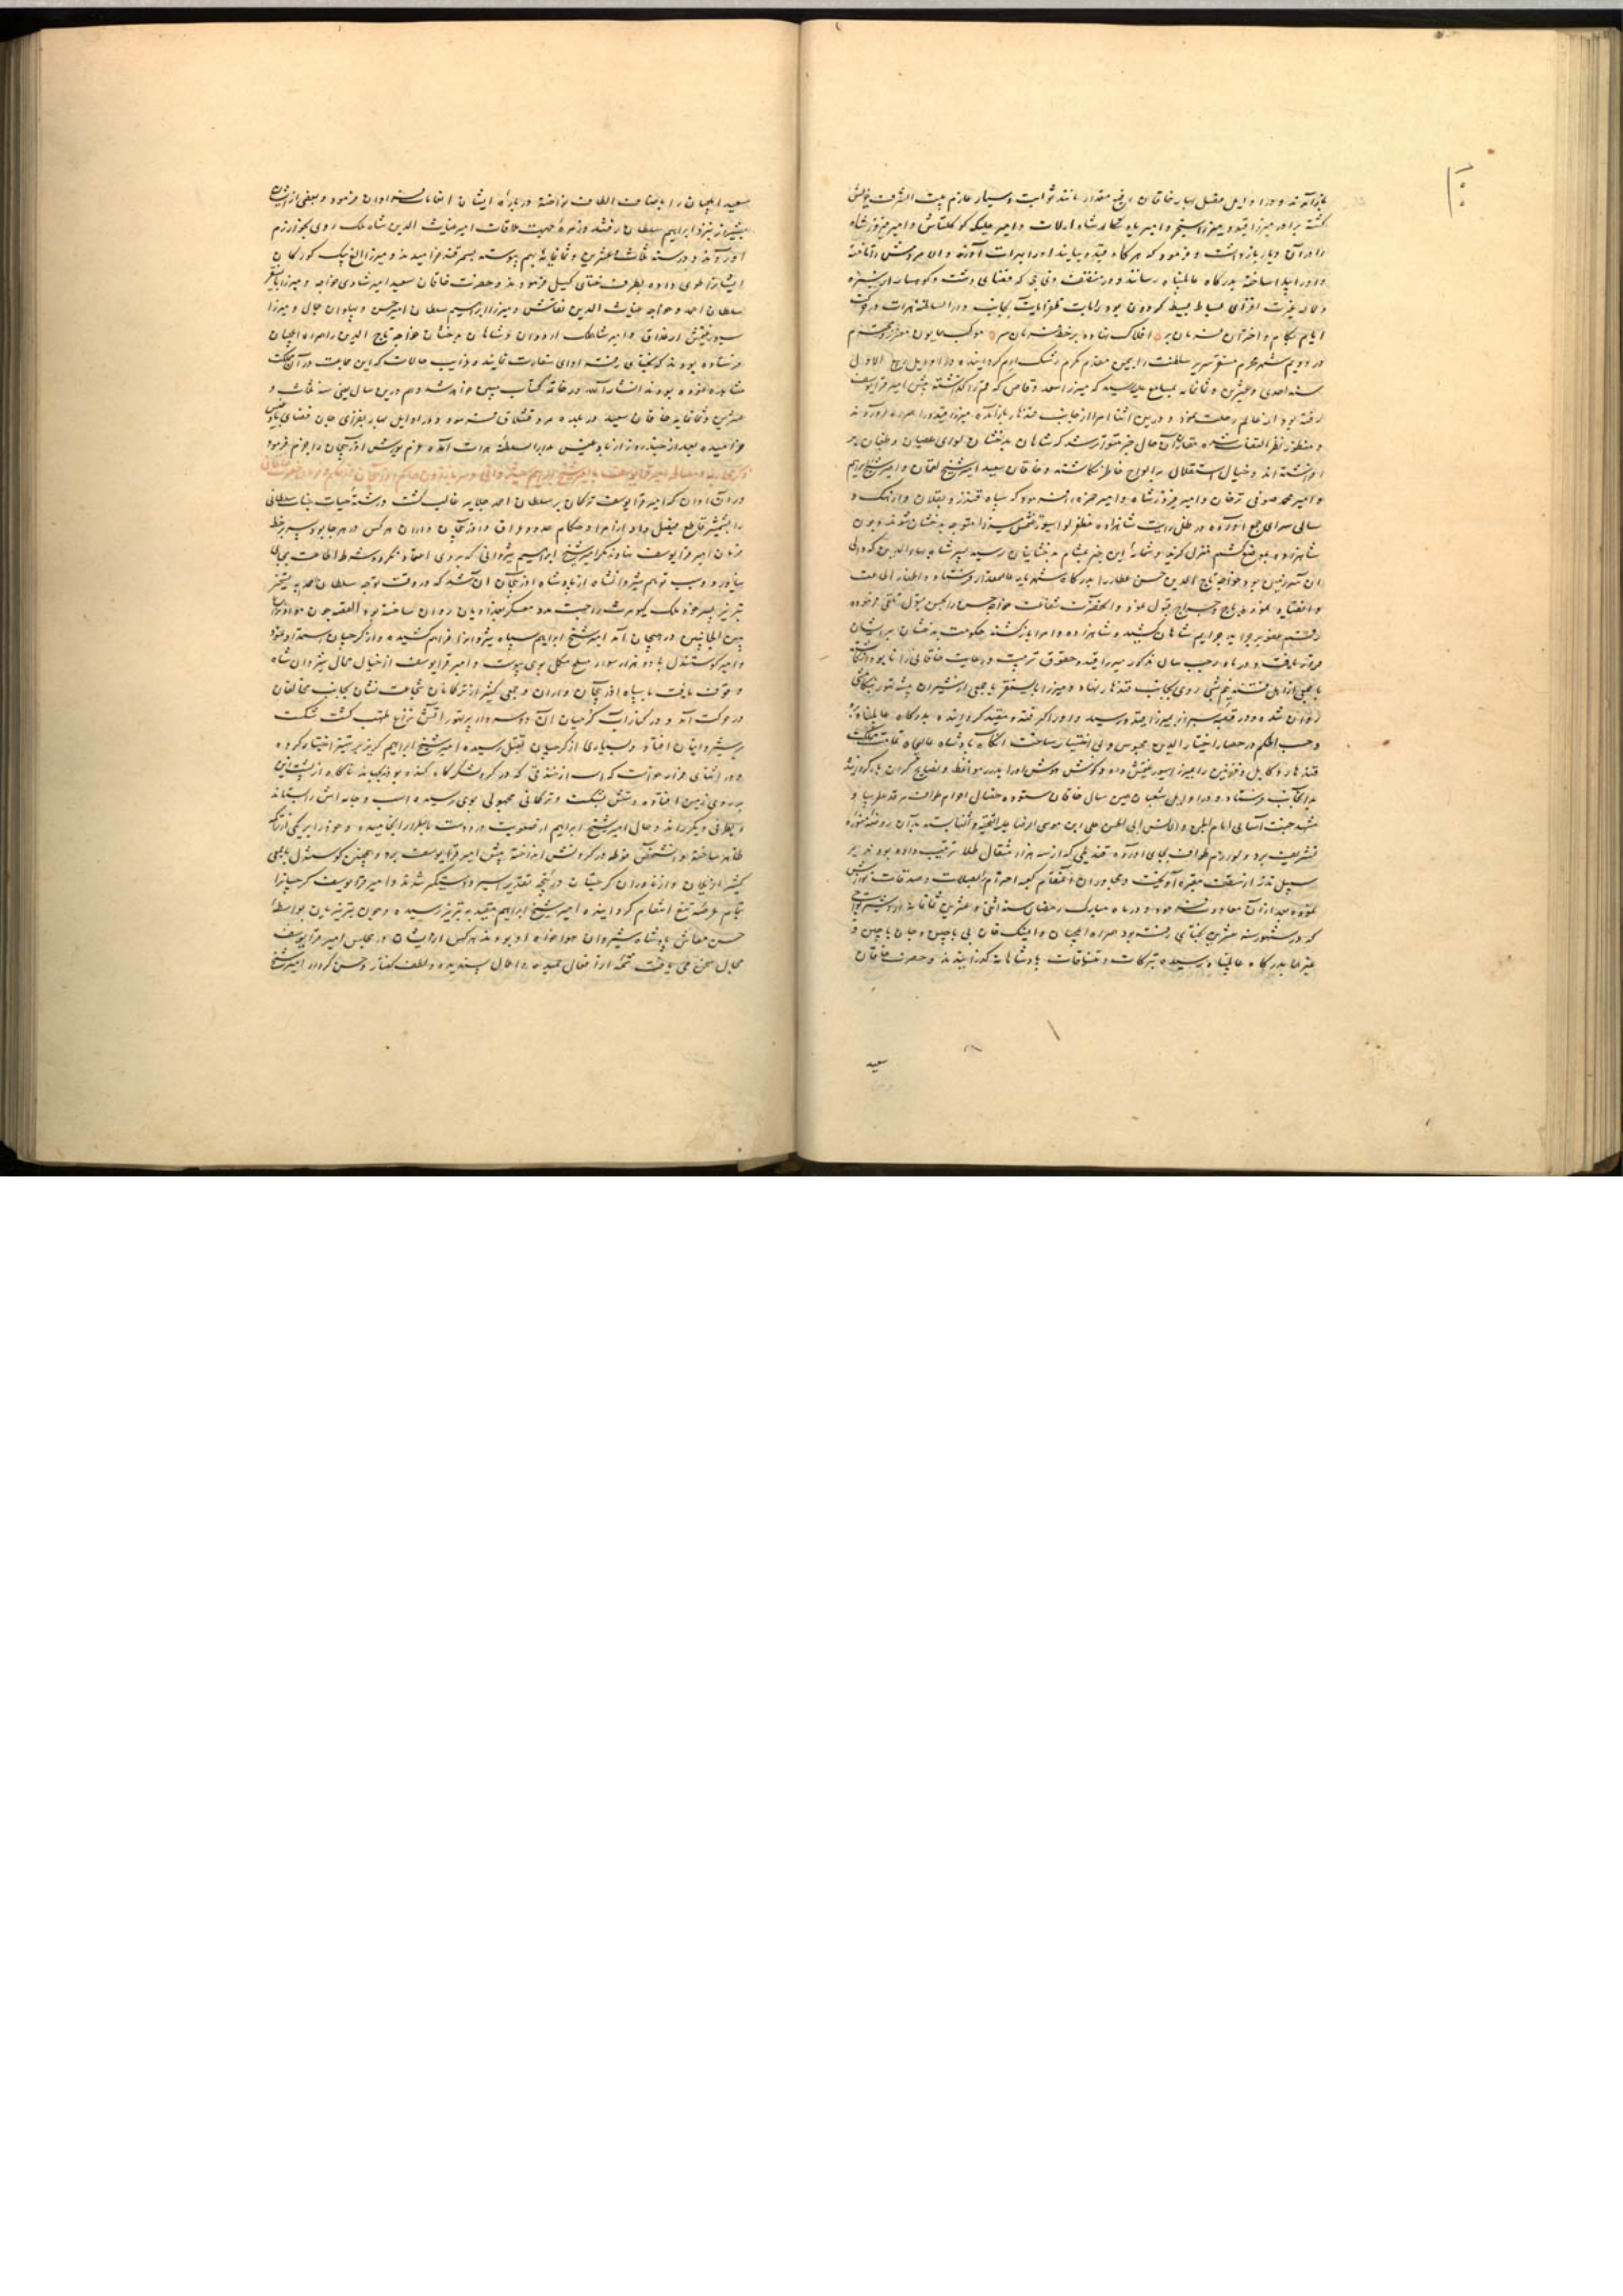 بازآمدند و در اوایل فصل بهار خاقان مانند ثوابت و سیار عازم بیت الشرف خویش
کشته برادر میرزا قیدو میرزا سنجر و امیر شاه ارلات و امیر علیکه کوکلتاش و امیر فیروزشاه
را در آن دیار بازداشت و فرمود که هرکاه قیدو بیاید او را بهرات آورند و الا
و او را ساخته بدرکاه عالمپناه رسانند و در که فضای دشت و کوهسار از سبزه
و لاله بساط بسیط کردون بود رایات بجانب دار السلطنه هرات
ایام بکام و اختران فرمان بر افلاک نهاده بر خط فرمان سر موکب همایون
در دویم شهر محرم مستقر سریر سلطنت را بیمن مقدم مکرم رشک ارم کردانید و در اوایل ربیع الاول
سنه احدی و عشرین و ثمانمایه رسید که میرزا سعد وقاص که قم را کذاشته پیش امیر قرایوسف
رفته بود از عالم رحلت نمود و در این اثنا امرا از جانب قندهار بازآمده میرزا قیدو را همراه آوردند
و منظور نظر التفات شده مقارن آن حال خبر متواتر شد که شاهان بدخشان لوای عصیان و طغیان بر
افراشته اند و خیال استقلال بر الواح خاطر نکاشته و خاقان سعید امیر شیخ لقمان و امیر شیخ ابراهیم
و امیر محمد صوفی ترخان و امیر فیروزشاه و امیر حمزه را فرمود که سپاه قندز و بقلان و ارهنک و
سالی سرای جمع آورده در ظل رایت شاهزاده میرزا متوجه بدخشان شوند و چون
شاهزاده بموضع کشم منزل کزید این خبر بدخشانیان رسید شاه بهاء الدین که والی
آن سرزمین بود خواجه تاج الدین حسن عطار را بدرکاه شهریار فرستاد و اظهار اطاعت
و انقیاد نموده باج و خراج قبول نمود و آنحضرت شفاعت خواجه حسن را بحسن قبول تلقی فرموده
رقم عفو بر جراید جرایم شاهان کشید و شاهزاده و امرا بازکشته حکومت بدخشان بر ایشان
قرار یافت و در ماه رجب سال مذکور میرزا قیدو حقوق تربیت و رعایت خاقانی را نابود
با جمعی از اهل فتنه نیم شبی روی بجانب قندهار نهاد و میرزا بایسنقر با جمعی از شیران
روان شد و در میرزا قیدو رسید و او را کرفته و مقید کردانیده بدرکاه عالمپناه
و حسب الحکم در حصار اختیار الدین محبوس و بی اختیار ساخت آنکاه پادشاه عالیجاه
قندهار و کابل و غزنین را بمیرزا سیورغتمش داد
بدانجانب فرستاد و در اوایل شعبان همین سال خاقان ستوده خصال احرام طواف مرقد
مشهد جنت آسای امام الجن و الانس ابی الحسن علی ابن موسی الرضا علیه التحیه و الثنا بسته بدان روضه منوره
تشریف برد و لوازم طواف بجای آورده قندیلی که از سه هزار مثقال طلا ترتیب داده بود بر
سبیل نذر از سقف مقبره آویخت و مجاوران کعبه احترام را بصلات و صدقات نوازش
نموده بعد از آن معاودت فرمود و در ماه مبارک رمضان سنه اثنی و عشرین ثمانمایه اردشیر
که در شهور سنه عشرین بختای رفته بود همراه ایلچیان دایمنک خان بی باچین و جان باچین و
غیرهما بدرکاه عالمپناه رسیده تبرکات و تنسوقات پادشاهانه کذرانیدند و حضرت خاقان
سعید
سعید ایلچیان را باصناف الطاف نواخته در باره ایشان انعامات فراوان فرمود و بعضی از ایشان
بشیراز نزد ابراهیم سلطان رفتند و زمره جهت ملاقات امیر غیاث الدین شاه ملک روی بخوارزم
آوردند و در سنه ثلث و عشرین و ثمانمایه بهم پیوسته بسمرقند خرامیدند و میرزا الغ بیک کورکان
ایشانرا طوی داده بطرف ختای کسیل فرمودند و حضرت خاقان سعید امیر شادی خواجه و میرزا بایسنقر
سلطان احمد و خواجه غیاث الدین نقاش و میرزا ابراهیم سلطان امیر حسن و پهلوان جمال و میرزا
سیورغتمش ارغداق و امیر شاهملک اردوان و شاهان بدخشان خواجه تاج الدین را همراه ایلچیان
فرستاده بودند که بختای رفته ادای سفارت نمایند و غرایب حالات که این جماعت در آن مملکت
مشاهده نموده بودند انشاء الله در خاتمه کتاب مبین خواهد شد و هم درین سال یعنی سنه ثلث و
عشرین و ثمانمایه خاقان سعید در بلده مرو قشلاق فرمود و در اوایل بهار بفرزی جان فضای بادغیس
خرامیده بعد از چند روز از بادغیس بدار السلطنه هرات آمده عزم یورش آذربایجان را جزم فرمود
ذکر محاربه امیر قرایوسف با امیر شیخ ابراهیم شیروانی
در آن اوان که امیر قرایوسف ترکمان بر سلطان احمد جلایر غالب کشت و رشته حیات جناب سلطانی
را بشمشیر قاطع فیصل داد از امرا و حکام حدود عراق و آذربایجان و اران هر کس در هر جا بود سر بر خط
فرمان امیر قرایوسف نهاد مکر امیر شیخ ابراهیم شیروانی که بر وی اعتماد نکرده شرط اطاعت بجای
نیاورد و سبب توهم شیروانشاه از پادشاه آذربایجان آن شد که در وقت توجه سلطان احمد به تسخیر
تبریز پسر خود ملک کیومرث را جهت مدد معسکر بغدادیان روان ساخته بود القصه چون مواد نزاع
بین الجانبین در هیجان آمد امیر شیخ ابراهیم سپاه شیروانرا فراهم کشیده و از کرجیان استمداد نمود
و امیر کوستندیل با دو هزار سوار مسلح مکمل بوی پیوست و امیر قرایوسف از خیال محال شیروانشاه
وقوف یافت با سپاه آذربایجان و اران و جمعی کثیر از ترکمانان شجاعت نشان بجانب مخالفان
در حرکت آمد و در کنار آب کرمیان آن دو سردار پرتهور آتش نزاع ملتهب کشت شکست
بر شیروانیان افتاد و بسیاری از کرجیان بقتل رسیدند امیر شیخ ابراهیم کریز بر ستیز اختیار کرده
و در اثنای فرار خواست که اسب از خندقی که در کرد لشکرکاه کنده بودند بجهاند ناکاه از پشت زین
بر روی زمین افتاده دستش بشکست و ترکمانی مجهولی بوی رسیده اسب و جامه اش را بستاند
و بطرفی دیکر راند و حال امیر شیخ ابراهیم از صعوبت درد دست باضطرار انجامیده و خود را بر یکی از تراکمه
ظاهر ساخته و آن شخص فوطه در کردنش انداخته پیش امیر قرایوسف برد و همچنین کوستندیل با جمعی
کثیر از نزدیکان کرجستان در پنجه تقدیر اسیر و دستکیر شدند و امیر قرایوسف کرجیانرا
بتمام عرضه تیغ انتقام کردانیده و امیر شیخ ابراهیم مقید به تبریز رسیده و چون تبریزیان بواسطه
حسن معاش پادشاه شیروان هواخواه او بودند هرکس از ایشان در مجلس امیر قرایوسف
مجال سخن می یافت شمه از افعال حمیده و اعمال پسندیده و لطف کفتار و حسن کردار امیر شیخ